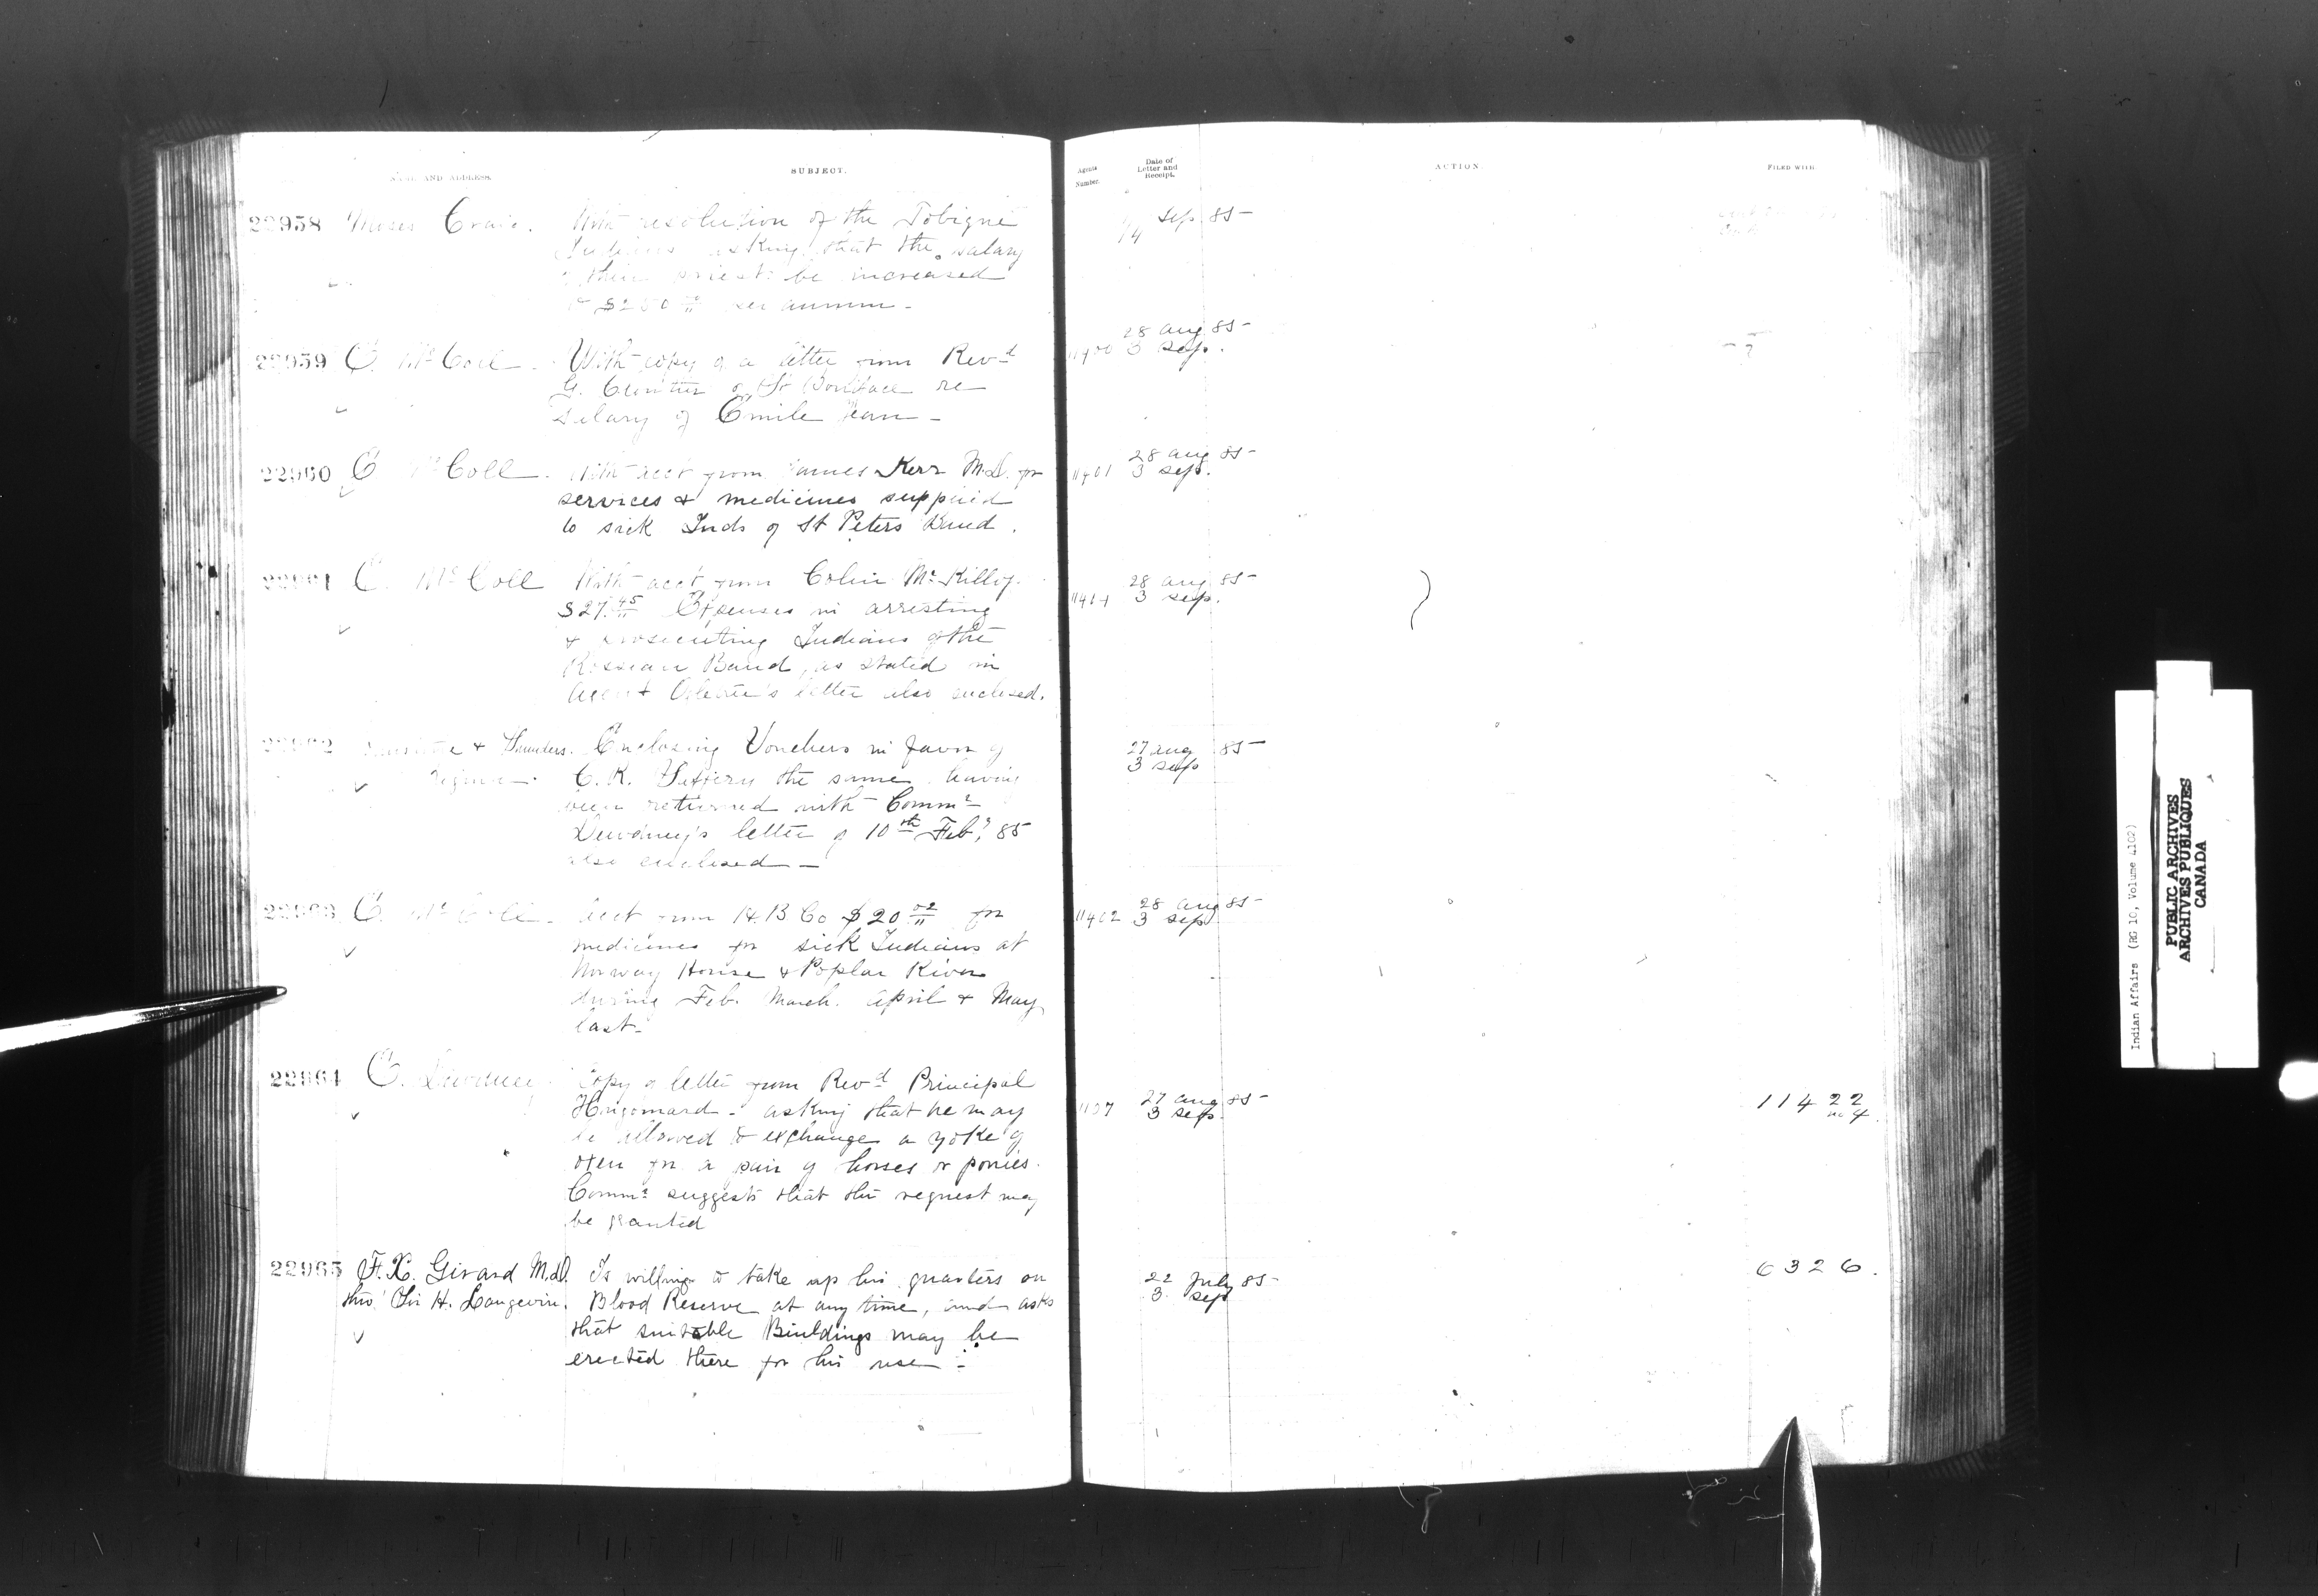 NAME AND ADDRESS.
SUBJECT.
Agents
Number.
Date of
Letter and
Receipt.
ACTION
FILED WITH
22958 Moses Craig. With resolution of the Tobique
Indians asking that the salary
of their priest be increased
to $250 per annum -
Sep. 85
22959 E. McColl. With copy of a letter from Revd
G. Cloutier of St Boniface re
salary of Emile Jean -
28 Aug 85
3 Sep.
22960 E McColl. With acct from James Kerr M.D. for
services & medicines suppied
to sick Inds of St Peters Band.
11401
28 Aug 85
3 Sep.
22961 E. McColl With acct from Colin McKillop
$27.45 Expenses in arresting
& prosecuting Indians of the
Rosseau Band, as stated in
Agent Ogletree's letter also enclosed.
28 Aug 85
3 Sep.
22962
Regina. Enclosing Vouchers in favor of
the same having
been returned with Commr
Dewdney's letter of 10th Feby 85
also enclosed -
27 Aug 85
3 Sep
22963 E. McColl. Acct from H.B Co $20.02 for
medicines for sick Indians at
Norway House & Poplar River
during Feb. March. April & May
last.
11402
28 Aug 85
3 Sep
22964 E. Dewdney. Copy of letter from Revd Principal
Hugonnard - asking that he may
be allowed to exchange a yoke of
oxen for a pair of horses or ponies.
Commr suggests that the request may
be granted
27 Aug 85
3 Sep.
11422
no 4.
22965 F.X. Girard M.D. Is willing to take up his quarters on
thro' Sir H. Langevin. Blood Reserve at any time, and asks
that suitable Buildings may be
erected there for his use -
22 July 85
3. Sep
6326.
Indian Affairs (RG 10, Volume 4102)
PUBLIC ARCHIVES
ARCHIVES PUBLIQUES
CANADA